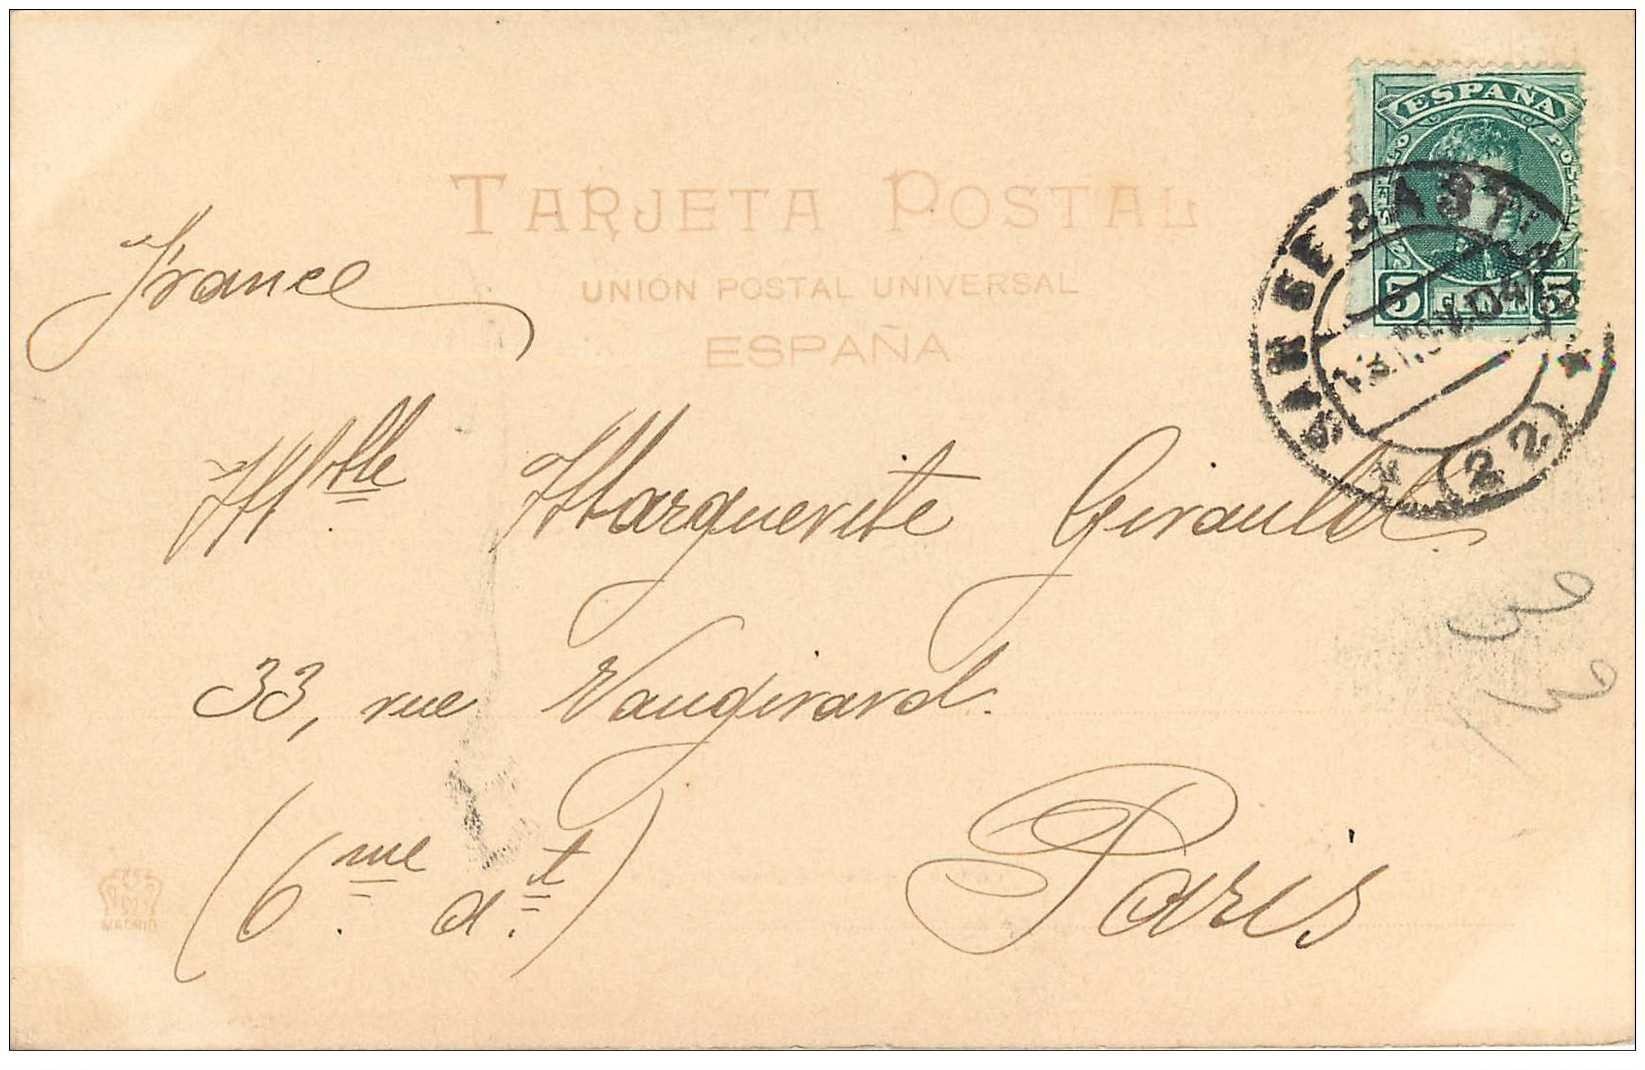 ESPAÑA
5 5
SAN SEBASTIAN
(22)
TARJETA POSTAL
UNIÓN POSTAL UNIVERSAL
ESPAÑA
France
Mlle Marguerite Girault
33, rue Vaugirard.
(6me. at.) Paris